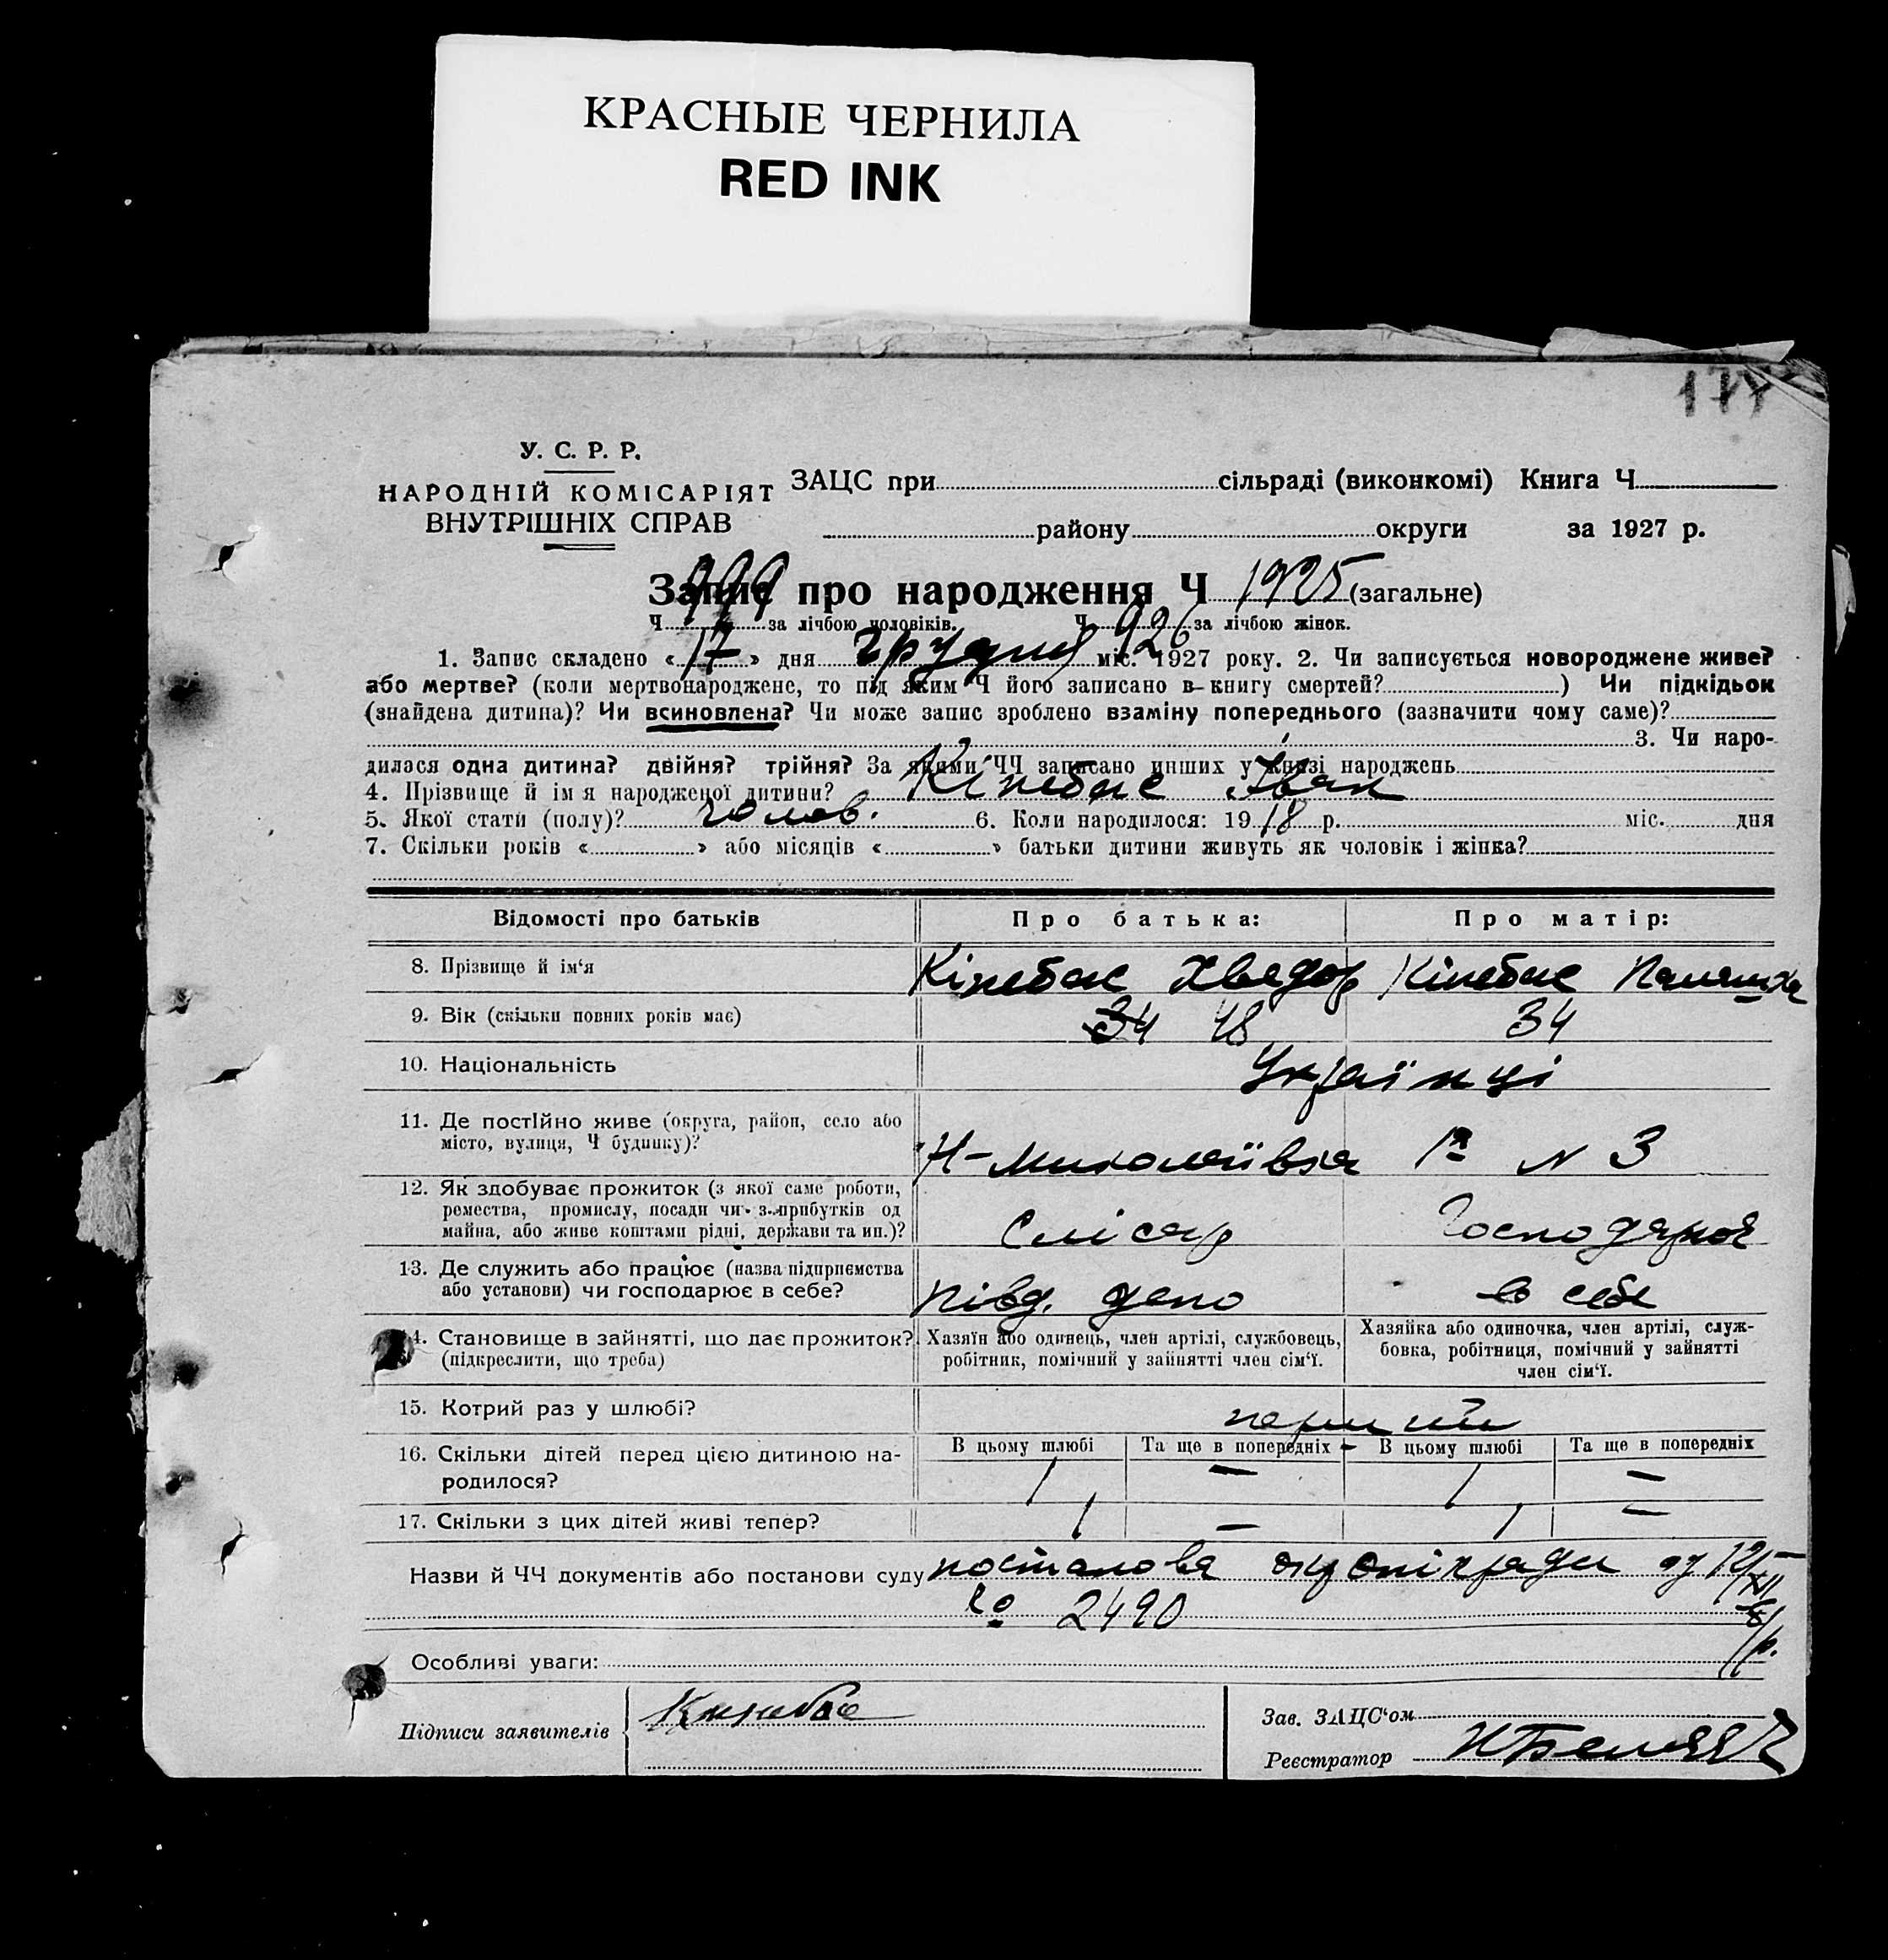 КРАСНЫЕ ЧЕРНИЛА
RED INK
У. С. Р. Р.
НАРОДНІЙ КОМІСАРІЯТ
ВНУТРІШНІХ СПРАВ
ЗАЦС при сільраді (виконкомі) Книга Ч
району округи за 1927 р.
Запис про народження Ч 1925 (загальне)
Ч 999 за лічбою чоловіків. Ч 926 за лічбою жінок.
1. Запис складено « 17 » дня грудня міс. 1927 року. 2. Чи записується новороджене живе?
або мертве? (коли мертвонароджене, то під яким Ч його записано в книгу смертей? ) Чи підкідьок
(знайдена дитина)? Чи всиновлена? Чи може запис зроблено взаміну попереднього (зазначити чому саме)?
3. Чи наро-
дилася одна дитина? двійня? трійня? За якими ЧЧ записано инших у книзі народжень
4. Прізвище й ім я народженої дитини? Кінебас Іван
5. Якої стати (полу)? чолов. 6. Коли народилося: 19 18 р. міс. дня
7. Скільки років « » або місяців « » батьки дитини живуть як чоловік і жінка?
Відомості про батьків Про батька: Про матір:
8. Прізвище й ім‘я Кінебас Хведор Кінебас
9. Вік (скільки повних років має) 34 48 34
10. Національність Українці
11. Де постійно живе (округа, район, село або
місто, вулиця, Ч будинку)? Н-Миколаївка 1а N 3
12. Як здобуває прожиток (з якої саме роботи,
ремества, промислу, посади чи з прибутків од
майна, або живе коштами рідні, держави та ин.)? Слісар Господарює
13. Де служить або працює (назва підприємства
або установи) чи господарює в себе? Півд. депо в себе
14. Становище в зайнятті, що дає прожиток?
(підкреслити, що треба)
Хазяїн або одинець, член артілі, службовець,
робітник, помічний у зайнятті член сім‘ї.
Хазяйка або одиночка, член артілі, служ-
бовка, робітниця, помічний у зайнятті
член сім‘ї.
15. Котрий раз у шлюбі? перший
16. Скільки дітей перед цією дитиною на-
родилося?
В цьому шлюбі Та ще в попередніх В цьому шлюбі Та ще в попередніх
1 — 1 —
17. Скільки з цих дітей живі тепер? 1 — 1 —
Назви й ЧЧ документів або постанови суду постанова
2490
Особливі уваги:
Підписи заявителів Кинебас
Зав. ЗАЦС‘ом
Реєстратор